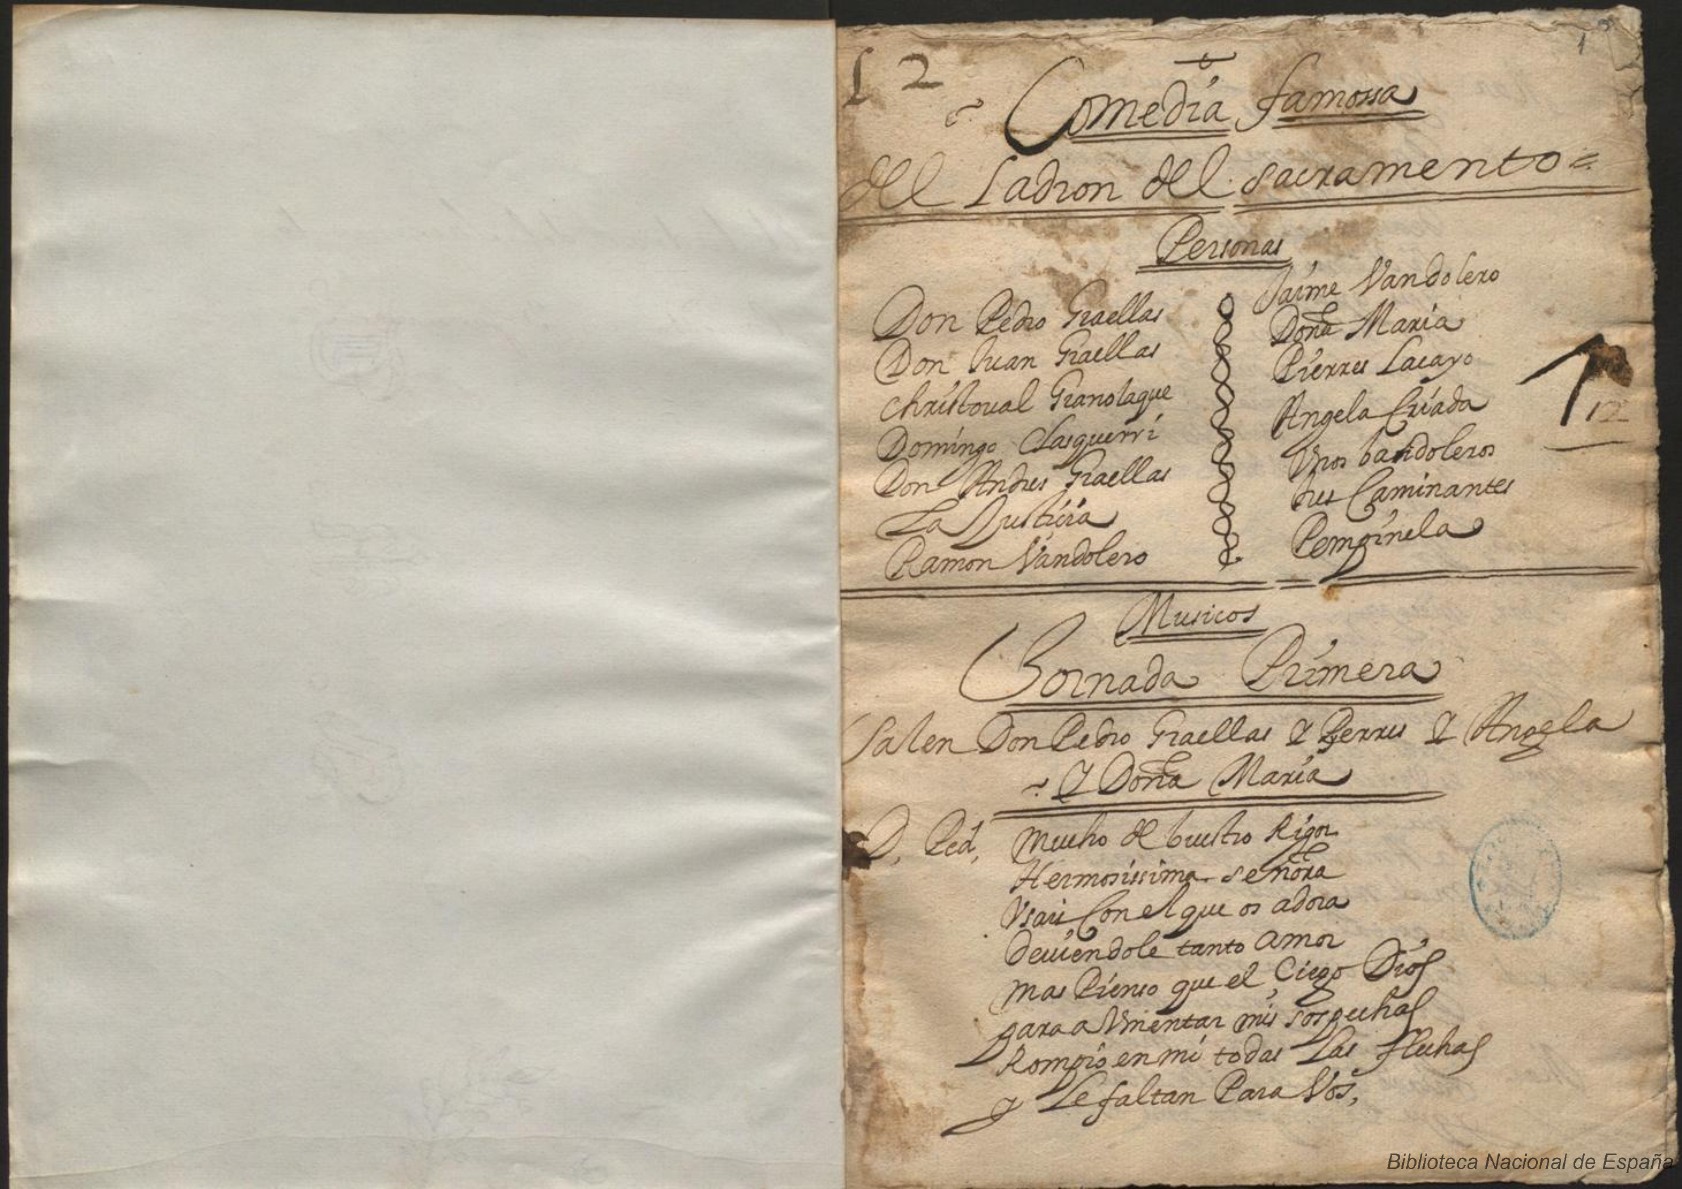 1
L 2
Comedia famossa
del Ladron del sacramento=
Personas
Don Pedro Graellas
Don Juan Graellas
Christoual Granolaque
Domingo Clasquerri
Don Andres Graellas
La Justicia
Ramon Vandolero
Jaime Vandolero
Doña Maria
Pierres Lacayo
Angela Criada
Vnos bandoleros
tres Caminantes
Pempinela
12
Musicos
Jornada Primera
Salen Don Pedro Graellas Y Pierres Y Angela
Y Doña Maria
D. Ped. Mucho de buestro Rigor
Hermosissima señora
Vsais Con el que os adora
Deuiendole tanto amor
mas Pienso que el Ciego Dios
para aVmentar mis sospechas
Rompio en mi todas Las flechas
y Le faltan Para Vos,
Biblioteca Nacional de España